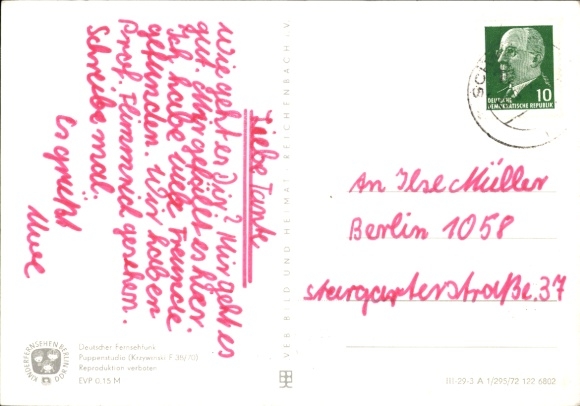 Liebe Tante
wie geht es Dir? Mir geht es
gut. Mir gefällt es hier.
Ich habe viele Freunde
gefunden. Wir haben
Prof. Flimmrich gesehen.
Schreibe mal.
Es grüßt
Uwe
An Ilse Müller
Berlin 1058
Stargarterstraße. 37
10
DEUTSCHE
DEMOKRATISCHE REPUBLIK
VEB BILD UND HEIMAT · REICHENBACH i. V.
KINDERFERNSEHEN BERLIN DDR
Deutscher Fernsehfunk
Puppenstudio (Krzywinski F 38/70)
Reproduktion verboten
EVP 0,15 M
III-29-3 A 1/295/72 122 6802